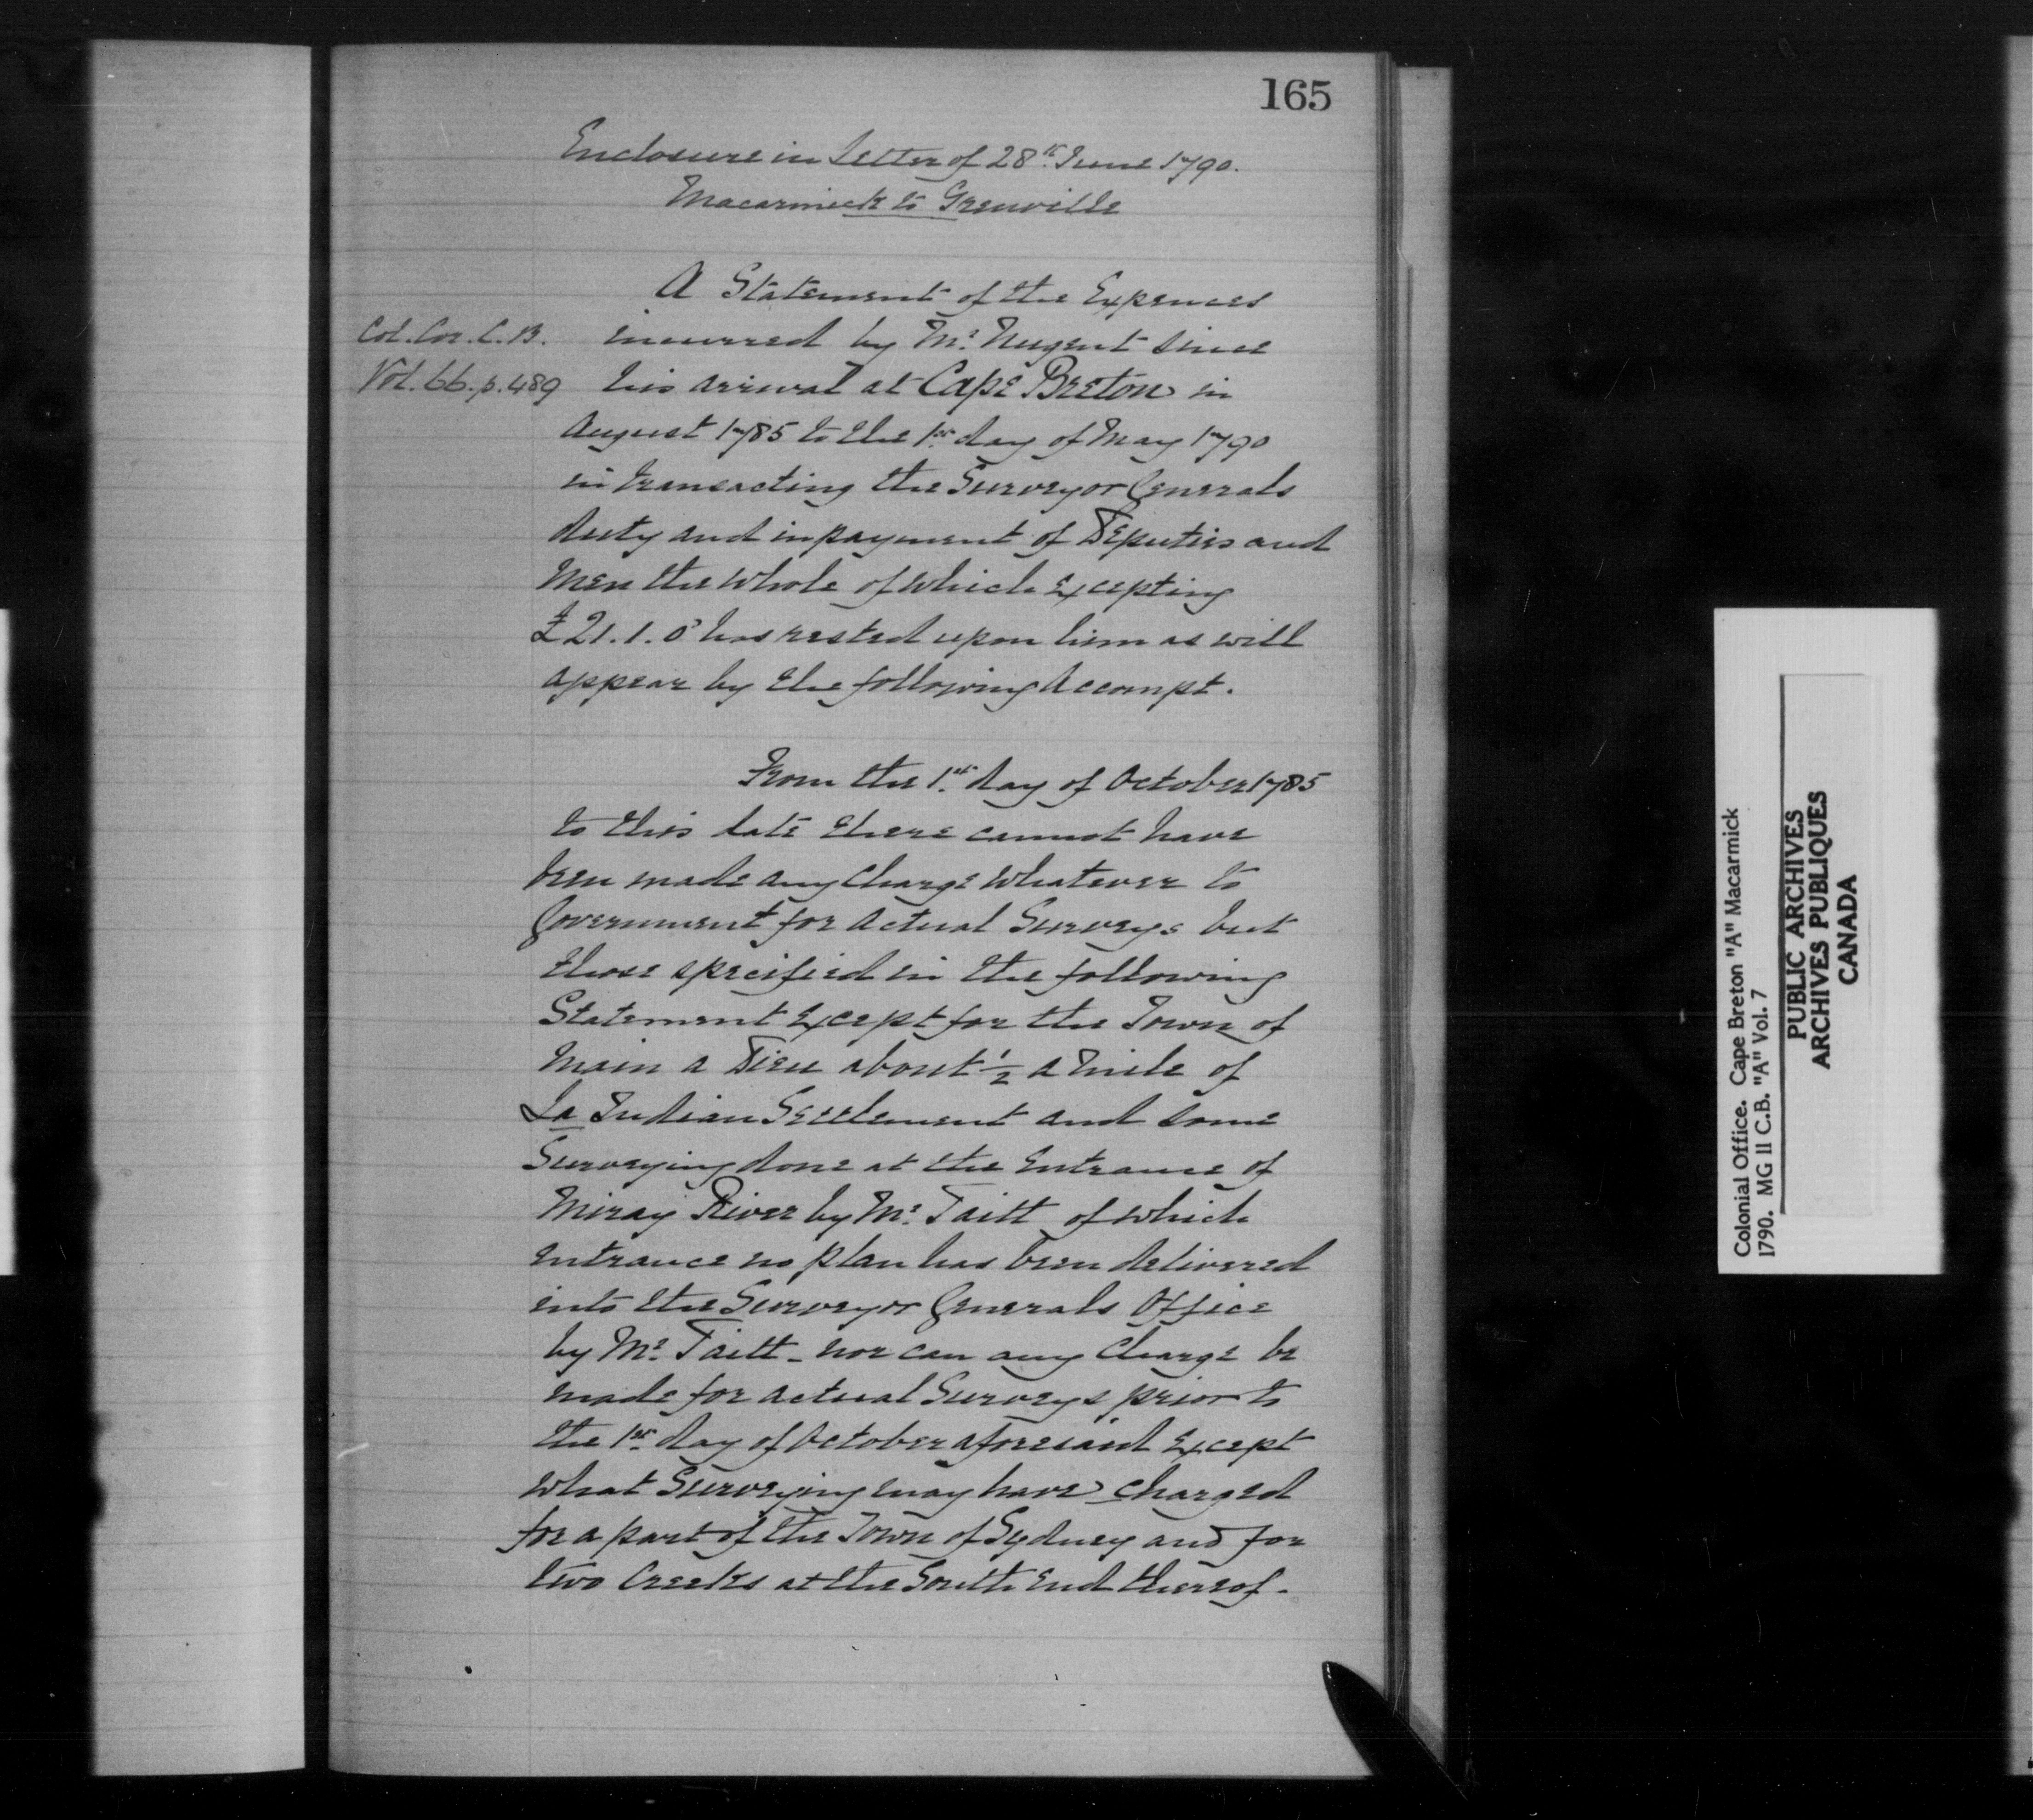 165
Enclosure in letter of 28th June 1790.
Macarmick to Grenville
A Statement of the Expences
Col. Cor. C. B.
Vol. 66. p. 489
incurred by Mr. Nugent since
his arrival at Cape Breton in
August 1785 to the 1st day of May 1790
in transacting the Surveyor Generals
duty and in payment of Deputies and
Men the whole of which Excepting
£21.1.0 has rested upon him as will
appear by the following Accompt.
From the 1st day of October 1785
to this date there cannot have
been made any charge whatever to
Government for actual Surveys but
those specified in the following
Statement Except for the Town of
Main a Dieu about ½ a mile of
La Indian Settlement and some
Surveying done at the Entrance of
Miray River by Mr. Taitt of which
entrance no plan has been delivered
into the Surveyor Generals Office
by Mr. Taitt - nor can any Charge be
made for actual Surveys prior to
the 1st day of October aforesaid Except
what Surveying may have charged
for a part of the Town of Sydney and for
two Creeks at the South End thereof.
Colonial Office. Cape Breton "A" Macarmick
1790. MG II C.B. "A" Vol. 7
PUBLIC ARCHIVES
ARCHIVES PUBLIQUES
CANADA